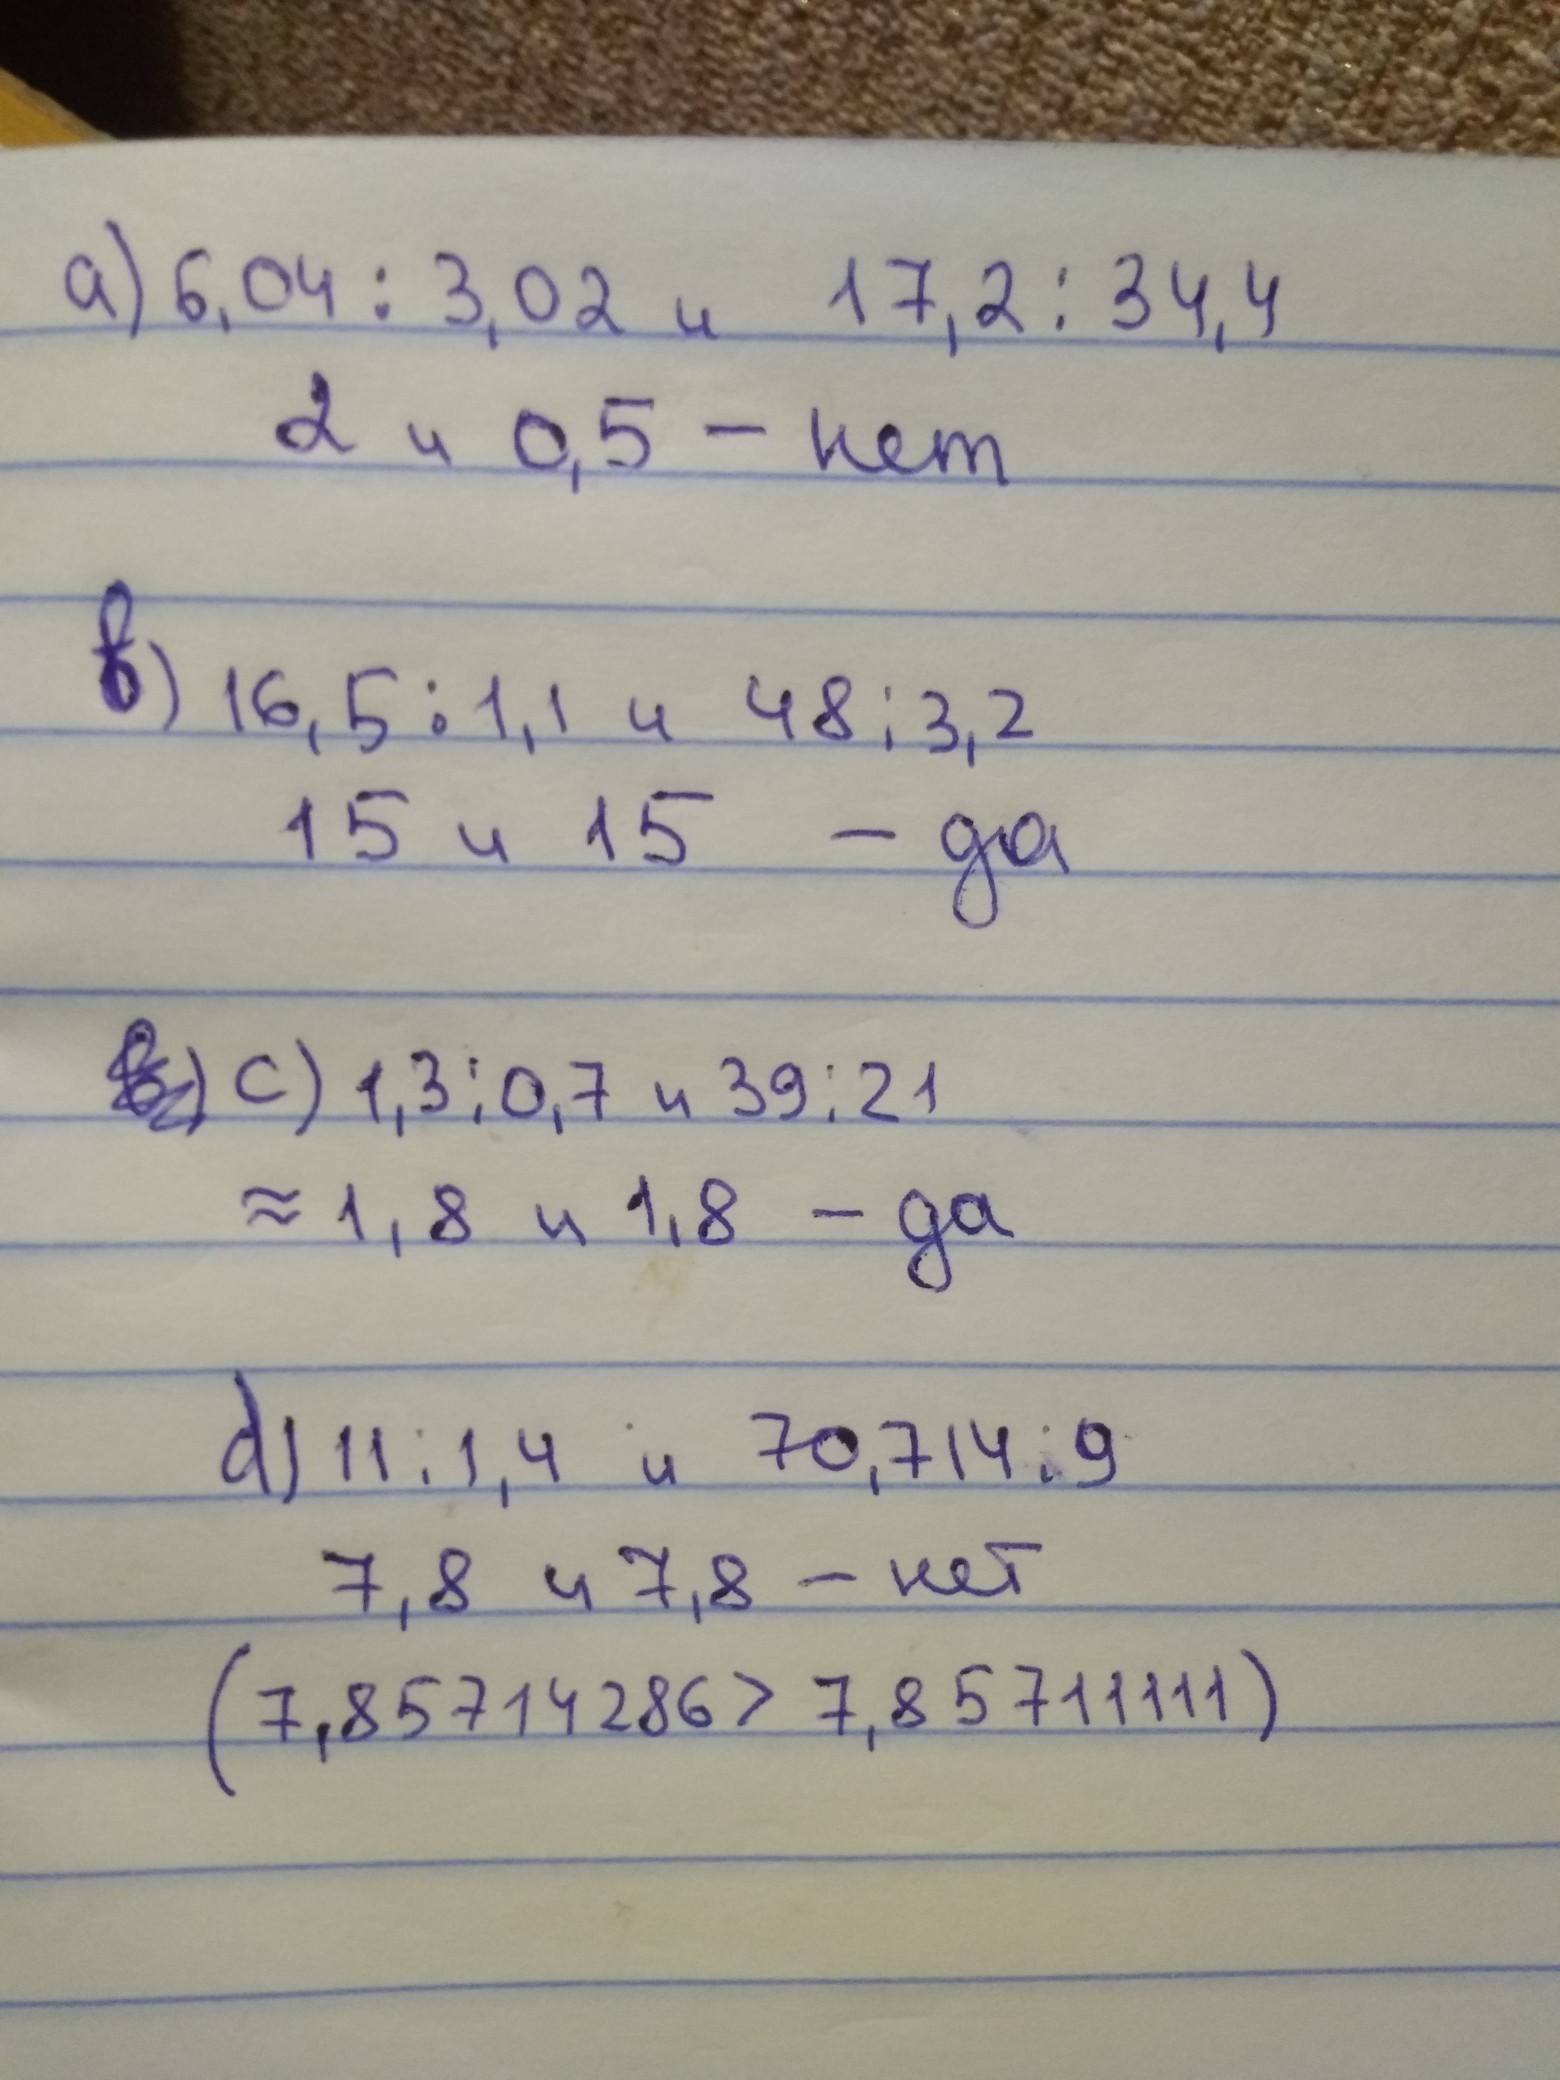 а) 6,04 : 3,02 и 17,2 : 34,4
2 и 0,5 – нет
в) 16,5 : 1,1 и 48 : 3,2
15 и 15 – да
c) 1,3 : 0,7 и 39 : 21
≈ 1,8 и 1,8 – да
d) 11 : 1,4 и 70,714 : 9
7,8 и 7,8 – нет
(7,85714286 > 7,85711111)